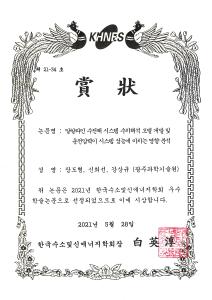 KHNES
제 21-34 호
賞狀
논문명 : 알칼라인 수전해 시스템 수치해석 모델 개발 및
운전압력이 시스템 성능에 미치는 영향 분석
성 명 : 장도형, 신희선, 강상규 (광주과학기술원)
위 논문은 2021년 한국수소및신에너지학회 우수
학술논문으로 선정되었으므로 이에 시상합니다.
2021년 5월 28일
한국수소및신에너지학회장 白英淳